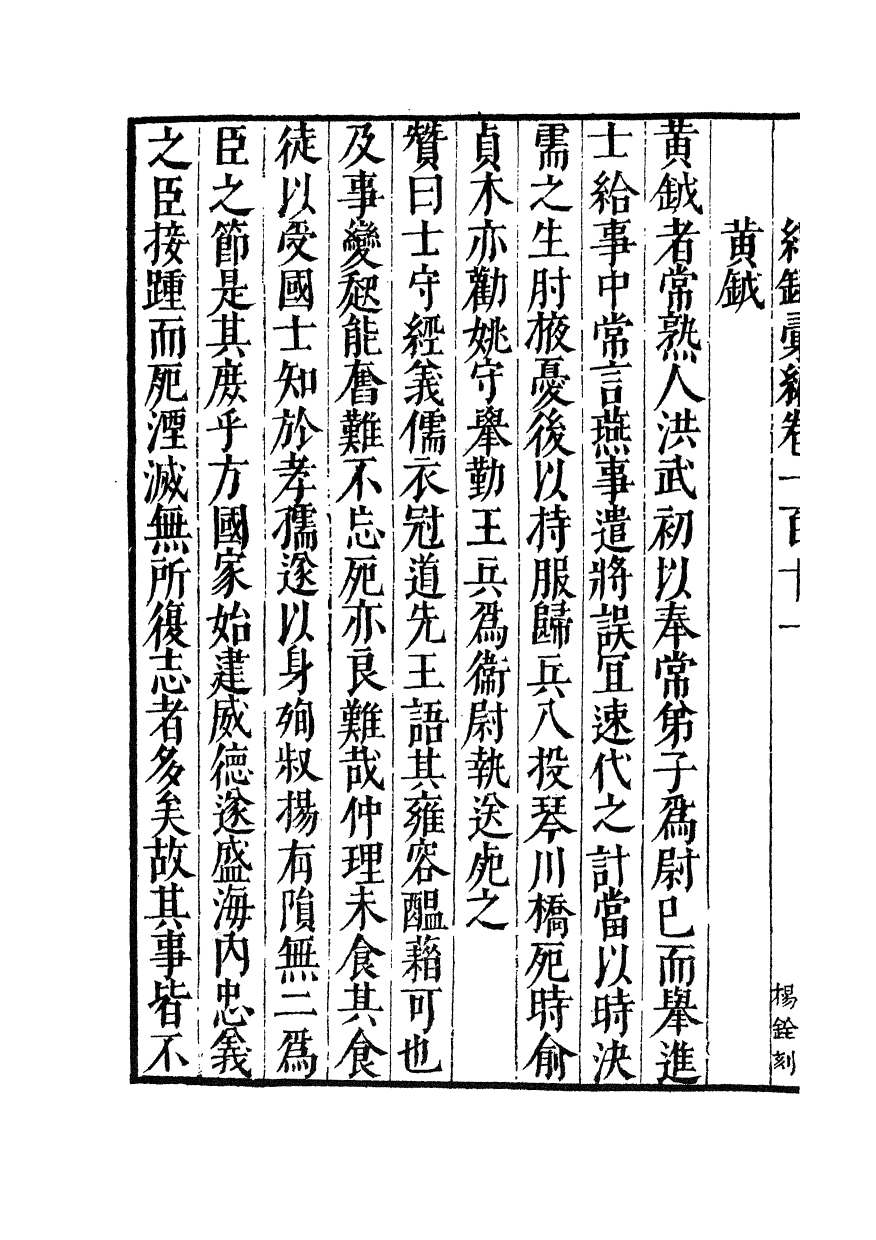 紀錄彙編卷一百十一
楊銓刻
黃鉞
黃鉞者常熟人洪武初以奉常弟子爲尉巳而舉進
士給事中常言燕事遣將誤宜速代之計當以時決
需之生肘掖憂後以持服歸兵入投琴川橋死時俞
貞木亦勸姚守舉勤王兵爲衞尉執送處之
贊曰士守經義儒衣冠道先王語其雍容醞藉可也
及事變愆能奮難不忘死亦良難哉仲理未食其食
徒以受國士知於孝孺遂以身殉叔揚有隕無二爲
臣之節是其庶乎方國家始建威德遂盛海內忠義
之臣接踵而死湮滅無所復志者多矣故其事皆不